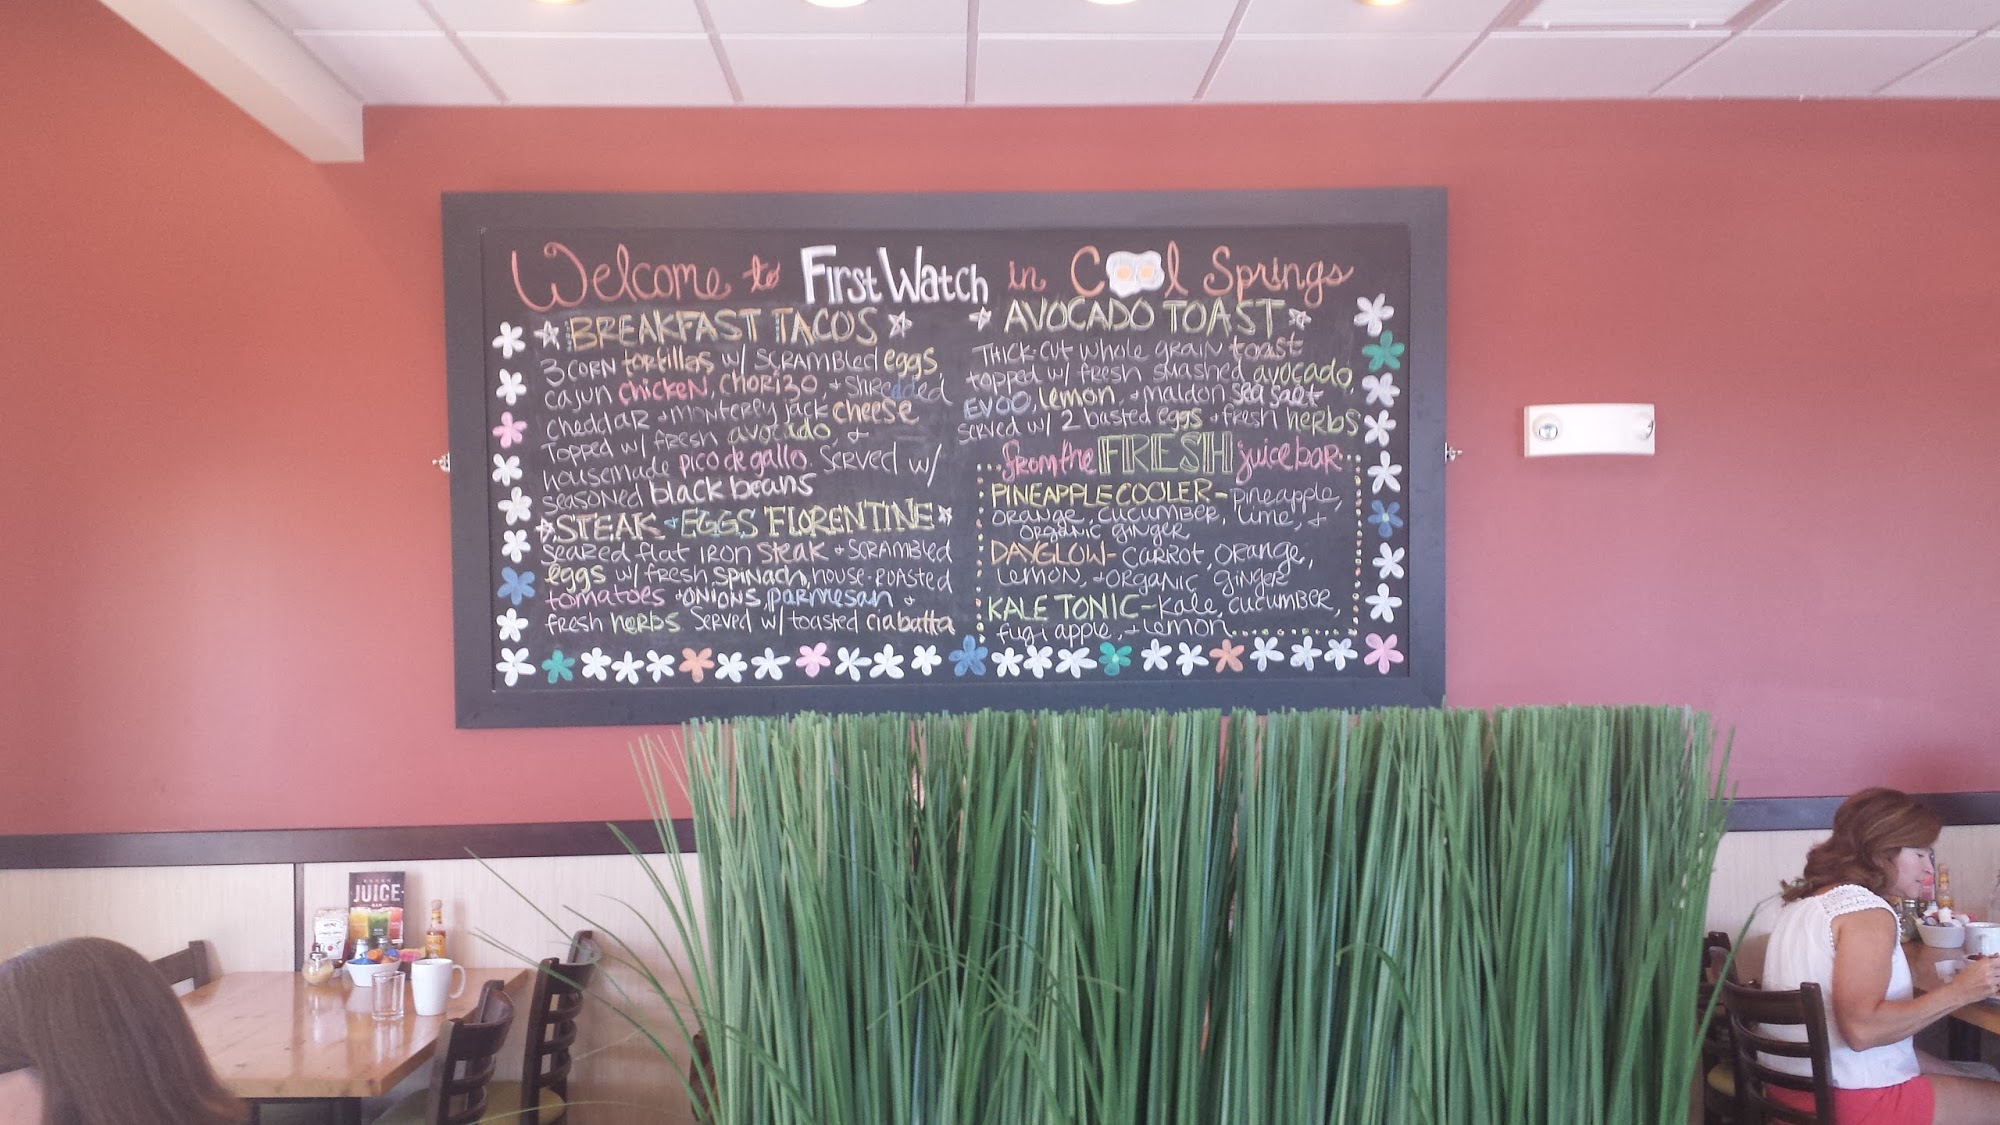 Welcome to First Watch in Cool Springs
BREAKFAST TACOS
3 CORN tortillas w/ SCRAMBLED eggs
cajun chicken, chorizo, + shredded
cheddar + monterey jack cheese
Topped w/ fresh avocado, +
housemade pico de gallo. Served w/
seasoned black beans
STEAK + EGGS FLORENTINE
seared flat iron steak + scrambled
eggs w/ fresh spinach, house-roasted
tomatoes + onions, parmesan +
fresh herbs. Served w/ toasted ciabatta
AVOCADO TOAST
THICK-CUT whole grain toast
topped w/ fresh smashed avocado,
EVOO, lemon, + maldon sea salt
served w/ 2 basted eggs + fresh herbs
from the FRESH juice bar
PINEAPPLE COOLER - pineapple,
orange, cucumber, lime, +
organic ginger
DAYGLOW - carrot, orange,
lemon, + organic ginger
KALE TONIC - kale, cucumber,
fugi apple, + lemon
JUICE
BAR